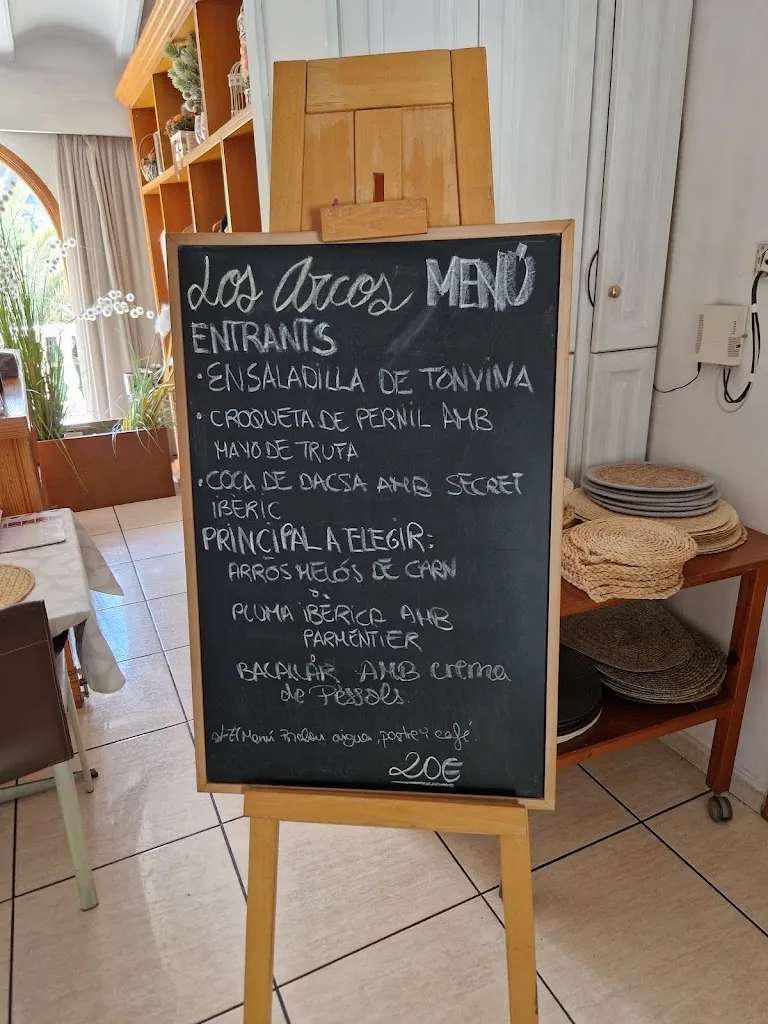 Los Arcos MENÚ
ENTRANTS
· ENSALADILLA DE TONYINA
· CROQUETA DE PERNIL AMB
MAYO DE TRUFA
· COCA DE DACSA AMB SECRET
IBÈRIC
PRINCIPAL A ELEGIR:
ARRÓS MELÓS DE CARN
o
PLUMA IBÈRICA AMB
PARMENTIER
o
BACALLÀR AMB crema
de Pèssols.
El Menú aigua, postre i café.
20€